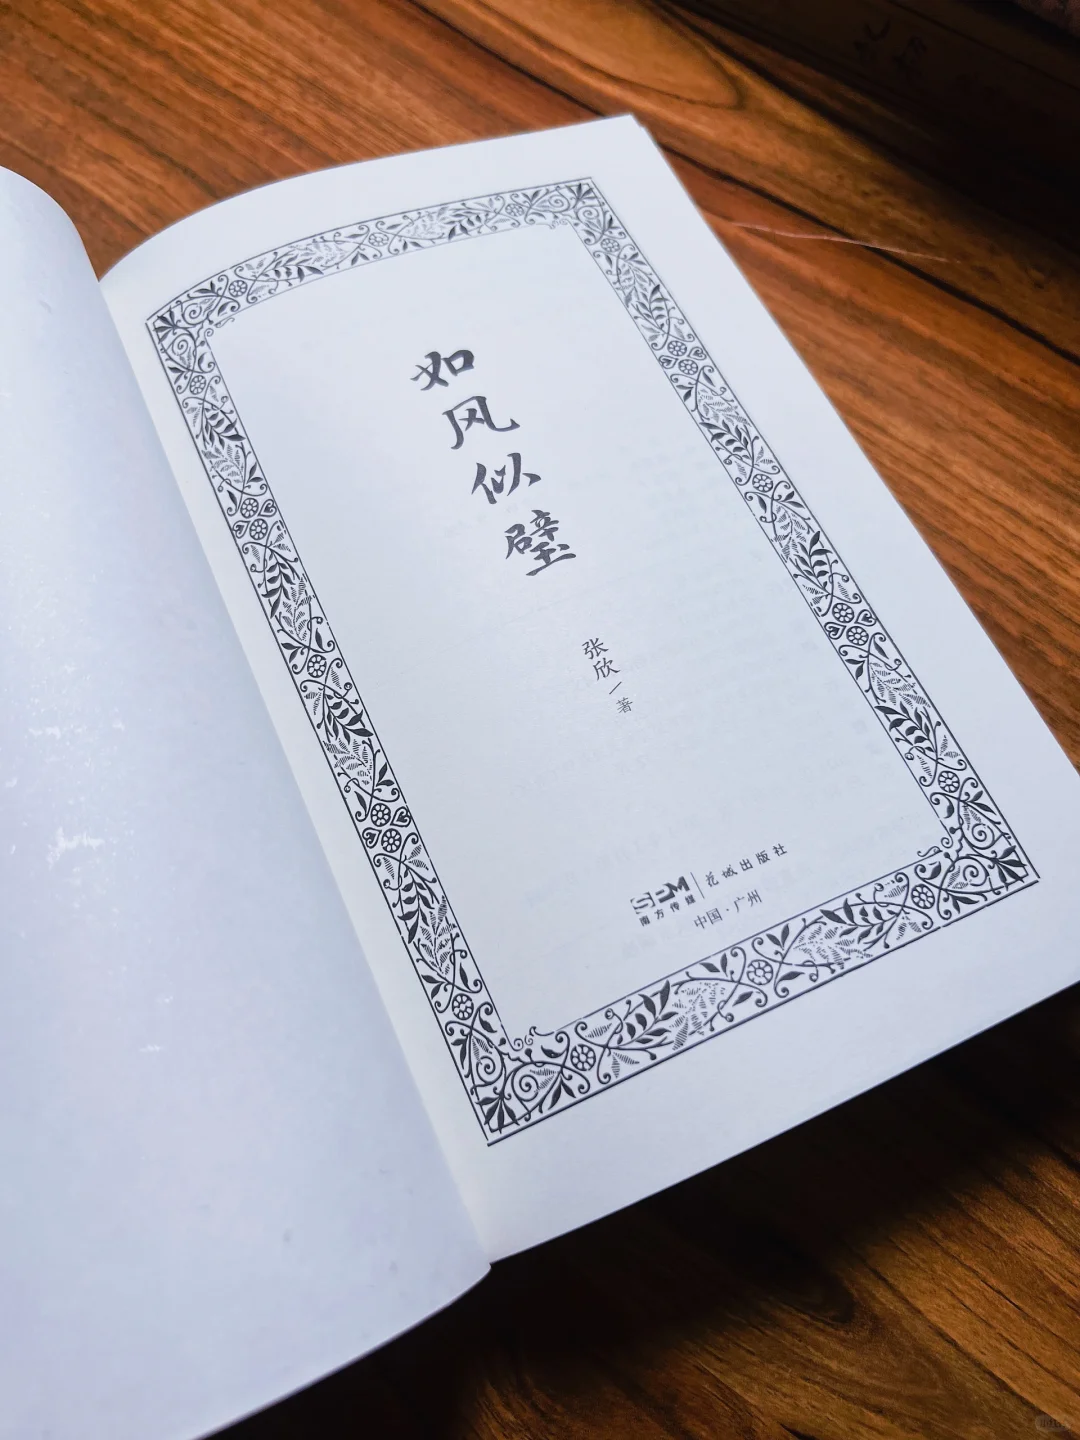 如风似璧
张欣 / 著
南方传媒
花城出版社
中国·广州